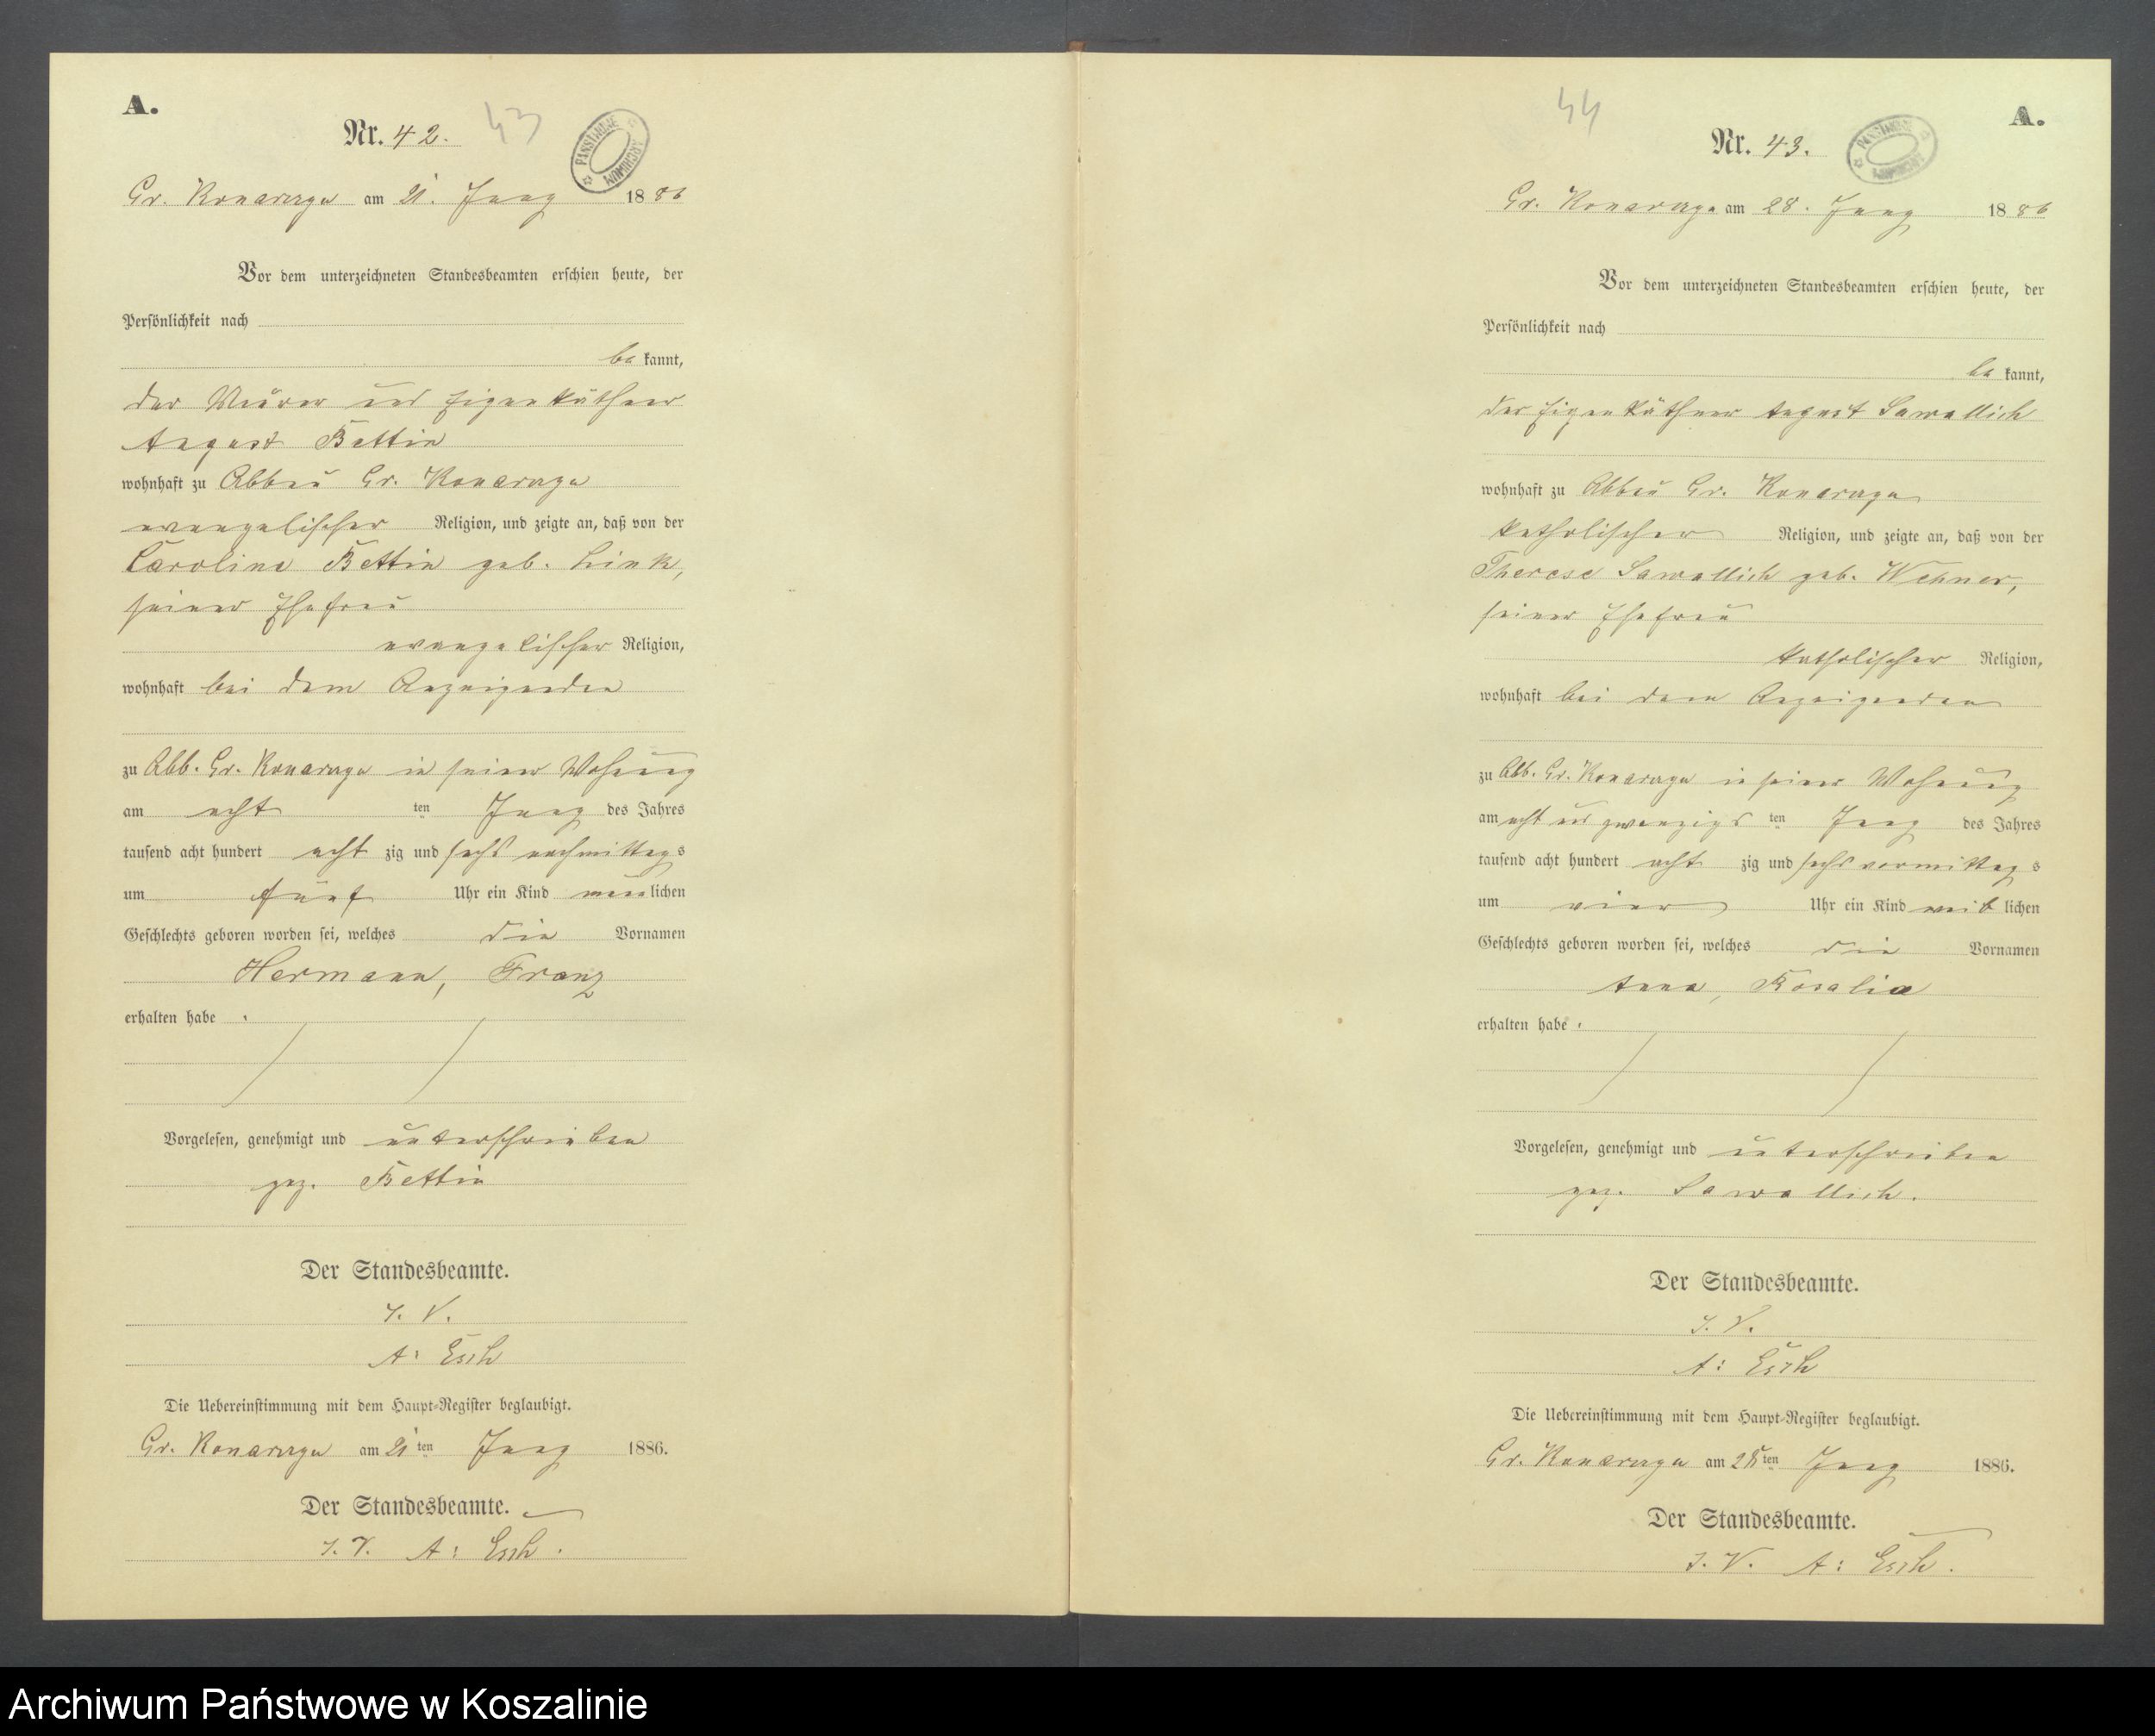 A.
Nr. 42.
43
PAŃSTWOWE ARCHIWUM
Gr. Konarzyn am 21. Juny 1886
Vor dem unterzeichneten Standesbeamten erschien heute, der
Persönlichkeit nach
be kannt,
der Maurer und Eigenkäthner
August Bettin
wohnhaft zu Abbau Gr. Konarzyn
evangelischer Religion, und zeigte an, daß von der
Caroline Bettin geb. Link,
seiner Ehefrau
evangelischer Religion,
wohnhaft bei dem Anzeigenden
zu Abb. Gr. Konarzyn in seiner Wohnung
am acht ten Juny des Jahres
tausend acht hundert acht zig und sechs nachmittags
um fünf Uhr ein Kind männlichen
Geschlechts geboren worden sei, welches die Vornamen
Hermann, Franz
erhalten habe.
Vorgelesen, genehmigt und unterschrieben
gez. Bettin
Der Standesbeamte.
I. V.
A: Esch
Die Uebereinstimmung mit dem Haupt-Register beglaubigt.
Gr. Konarzyn am 21 ten Juny 1886.
Der Standesbeamte.
I. V. A: Esch.
44
A.
Nr. 43.
PAŃSTWOWE ARCHIWUM
Gr. Konarzyn am 28. Juny 1886
Vor dem unterzeichneten Standesbeamten erschien heute, der
Persönlichkeit nach
be kannt,
der Eigenkäthner August Sawallich
wohnhaft zu Abbau Gr. Konarzyn
katholischer Religion, und zeigte an, daß von der
Therese Sawallich geb. Wehner,
seiner Ehefrau
katholischer Religion,
wohnhaft bei dem Anzeigenden
zu Abb. Gr. Konarzyn in seiner Wohnung
am acht und zwanzigs ten Juny des Jahres
tausend acht hundert acht zig und sechs vormittags
um vier Uhr ein Kind weiblichen
Geschlechts geboren worden sei, welches die Vornamen
Anna, Rosalia
erhalten habe.
Vorgelesen, genehmigt und unterschrieben
gez. Sawallich.
Der Standesbeamte.
I. V.
A: Esch
Die Uebereinstimmung mit dem Haupt-Register beglaubigt.
Gr. Konarzyn am 28 ten Juny 1886.
Der Standesbeamte.
I. V. A: Esch.
Archiwum Państwowe w Koszalinie